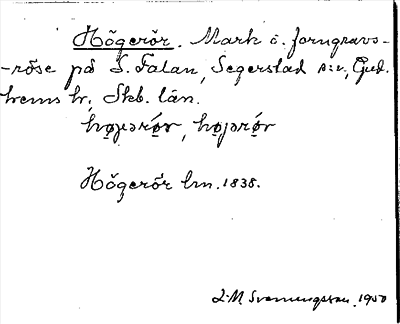 Högerör. Mark o. forngravs-
-röse på S. Falan, Segerstad s:n, Gud-
hems hr, Skb. län.
hø̜jərǿ̜r, hø̜jərǿ̜r
Högerör lm. 1838.
L.M. Svenungsson. 1950